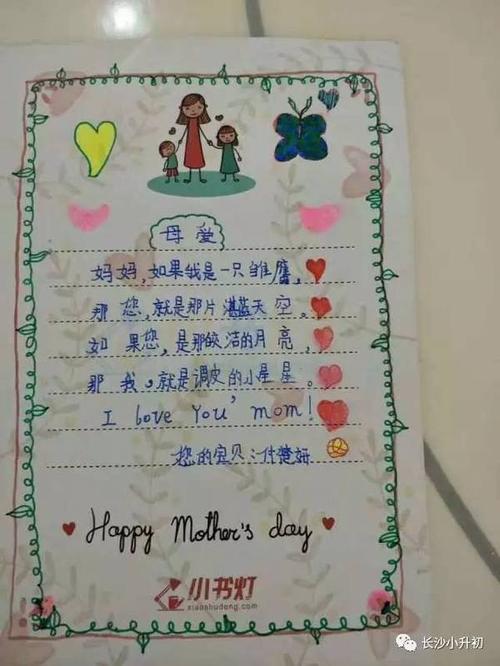 母爱
妈妈，如果我是一只雏鹰，
那您，就是那片湛蓝天空。
如果您，是那皎洁的月亮，
那我，就是调皮的小星星。
I love You' mom!
您的宝贝：付楚妍
Happy Mother's day
小书灯
xiaoshudeng.com
长沙小升初